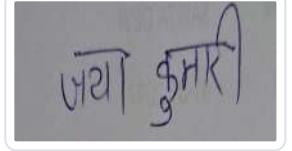 जया कुमारी